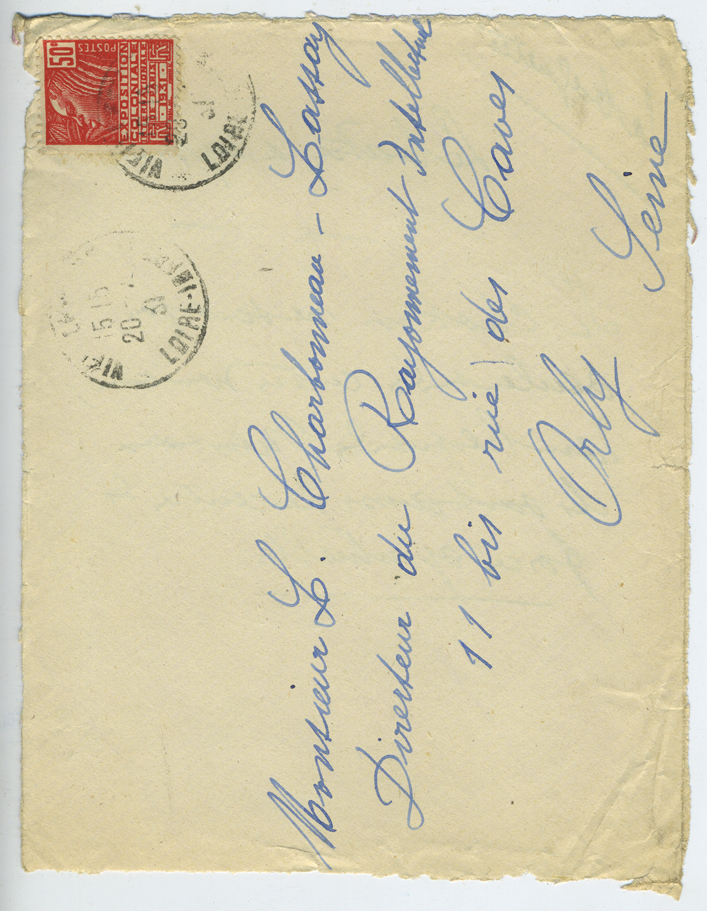 50c
POSTES
EXPOSITION
COLONIALE
INTERNATIONALE
PARIS
1931
LOIRE
15 15
20
31
LOIRE-INF
Monsieur L. Charbonneau-Lassay
Directeur du Rayonnement Intellectuel
11 bis rue des Caves
Orly
Seine